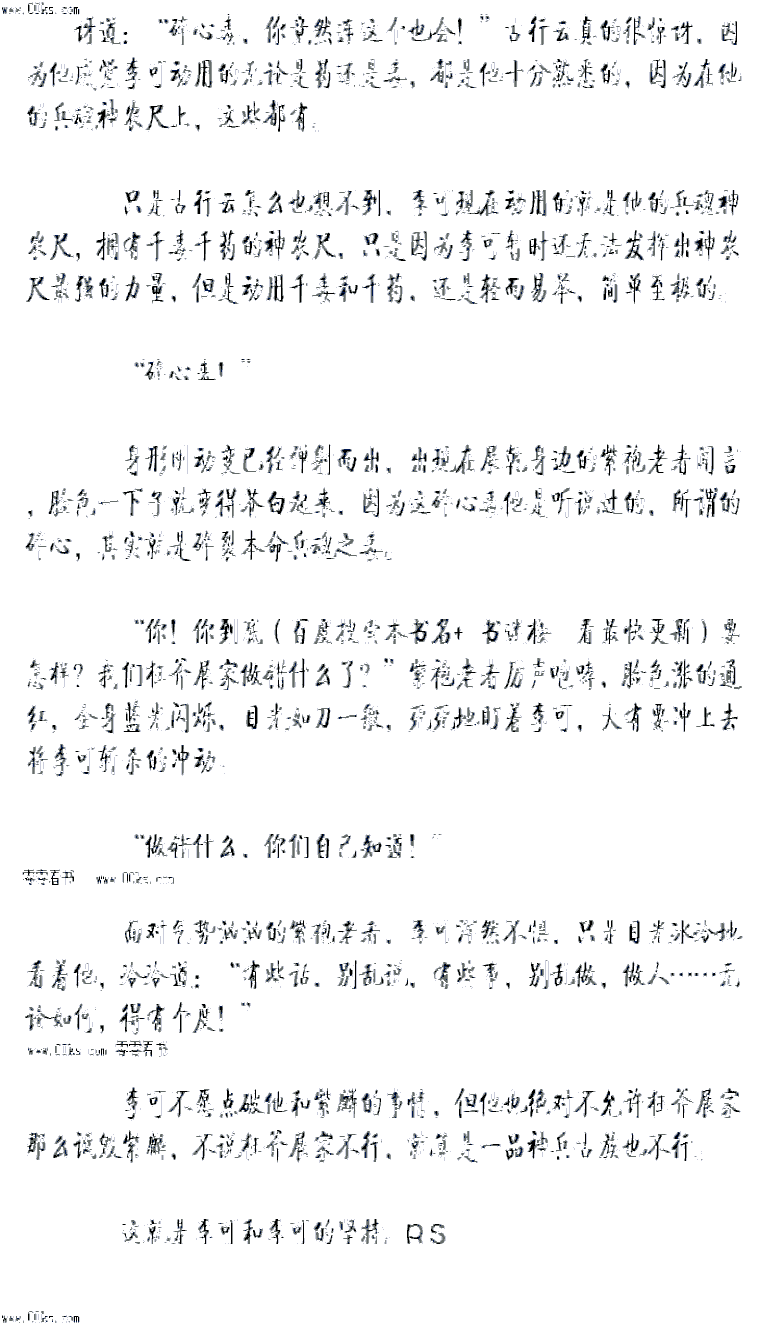 www.00ks.com
讶道：“碎心毒，你竟然连这个也会！”古行云真的很惊讶，因
为他感觉李可动用的无论是药还是毒，都是他十分熟悉的，因为在他
的兵魂神农尺上，这些都有。
只是古行云怎么也想不到，李可现在动用的就是他的兵魂神
农尺，拥有千毒千药的神农尺，只是因为李可暂时还无法发挥出神农
尺最强的力量，但是动用千毒和千药，还是轻而易举，简单至极的。
“碎心毒！”
身形刚动变已经弹射而出，出现在展乾身边的紫袍老者闻言
，脸色一下子就变得苍白起来，因为这碎心毒他是听说过的，所谓的
碎心，其实就是碎裂本命兵魂之毒。
“你！你到底（百度搜索本书名+ 书迷楼 看最快更新）要
怎样？我们狂斧展家做错什么了？”紫袍老者厉声咆哮，脸色涨的通
红，全身蓝光闪烁，目光如刀一般，死死地盯着李可，大有要冲上去
将李可斩杀的冲动。
“做错什么，你们自己知道！”
零零看书 www.00ks.com
面对气势汹汹的紫袍老者，李可浑然不惧，只是目光冰冷地
看着他，冷冷道：“有些话，别乱说，有些事，别乱做，做人……无
论如何，得有个度！”
www.00ks.com 零零看书
李可不愿点破他和紫麟的事情，但他也绝对不允许狂斧展家
那么诋毁紫麟，不说狂斧展家不行，就算是一品神兵古族也不行。
这就是李可和李可的坚持。RS
www.00ks.com